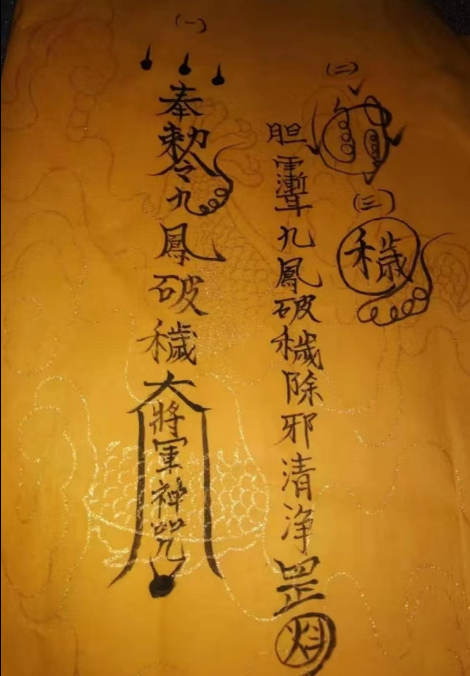 (一)
奉勅令九鳳破穢大將軍神咒
(二)
胆九鳳破穢除邪清净罡
(三)
穢